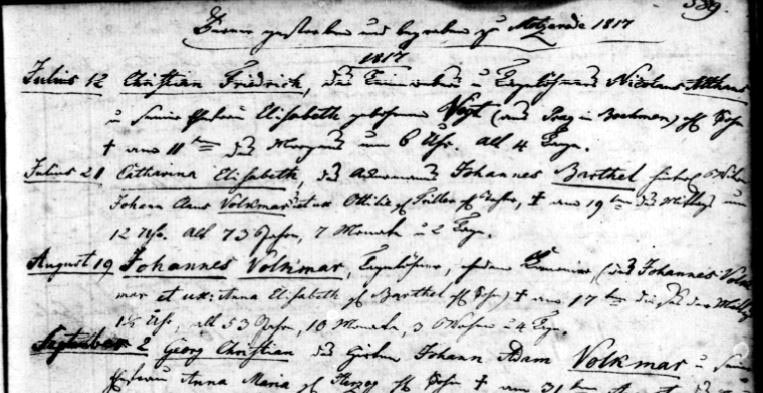 539.
Ferner gestorben und begraben zu Motzenrode 1817
1817
Julius 12 Christian Friedrich, des Einwohners u Tagelöhners Nicolaus
u seiner Ehefrau Elisabeth geborene Vogt (aus Prag in Boehmen) ehl Sohn
† am 11ten des Morgens um 6 Uhr. alt 4 Tage.
Julius 21 Catharina Elisabeth, des Ackermanns Johannes Barthel
Johann Claus Volkmar et ux Ottilia Tochter, † am 19ten des Mittags um
12 Uhr. alt 73 Jahre, 7 Monate u 2 Tage.
August 19 Johannes Volkmar, Tagelöhner, (des Johannes Volk
mar et ux: Anna Elisabeth Barthel Sohn) † am 17ten
Uhr, alt 53 Jahre, 10 Monate, 3 Wochen u 4 Tage.
September 2 Georg Christian des Johann Adam Volkmar u seiner
Ehefrau Anna Maria Herzog Sohn † am 31ten August